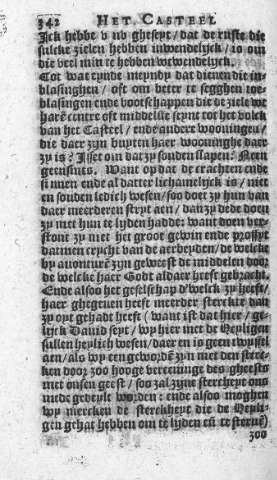 342 HET CASTEEL
Ick hebbe v nv gheseyt/ dat de ruste die
sulcke zielen hebben inwendelijck/ is om
die veel min te hebben wtwendelijck.
Tot wat eynde meyndy dat dienen die in-
blasinghen/ oft om beter te segghen toe-
blasingen ende bootschappen die de ziele wt
harē centre oft middelste seynt tot het volck
van het Casteel/ ende andere wooningen/
die daer zyn buyten haer wooninghe daer
zy is? Isset om dat zy souden slapen? Neen
geensins. Want op dat de crachten ende
sinnen ende al datter lichamelijck is/ niet
en souden ledich wesen/ soo doet zy hun van
daer meerderen strijt aen/ dan zy dede doen
zy met hun te lyden hadde: want doen ver-
stont zy niet het groot gewin ende proffyt
datmen crycht van de arbeyden/ de welcke
by auonturē zyn geweest de middelen door
de welcke haer Godt aldaer heeft gebracht.
Ende alsoo het geselschap d'welck zy heeft/
haer ghegeuen heeft meerder sterckte dan
zy oyt gehadt heeft (want ist dat hier/ ge-
lijck Dauid seyt/ wy hier met de Heyligen
sullen heylich wesen/ daer en is geen twyffel
aen/ als wy een gewordē zyn met den sterc-
ken door zoo hooge vereeninge des gheests
met onsen geest/ soo zal zyne sterckheyt ons
mede gedeylt worden: ende alsoo moghen
wy mercken de sterckheyt die de Heyli-
gen gehat hebben om te lyden eñ te steruē)
zoo